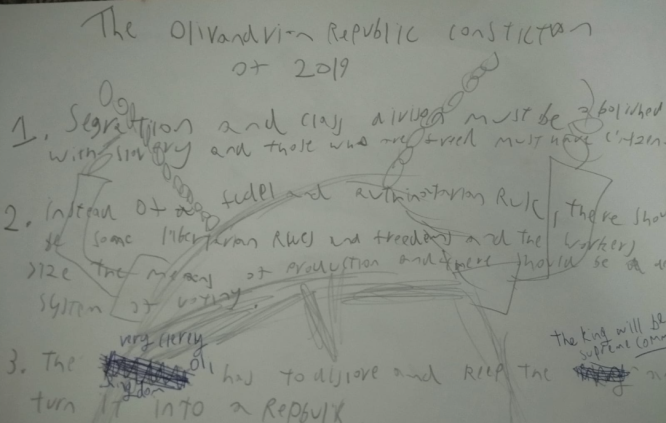 The Olivandrian Republic constiction
of 2019
1. Segration and class divison must be abolished
with slavery and those who are freed must have citizen
2. instead of fudel and authroitarian Rule, there shou
be some libertarian Rules and freedens and the workers
size the means of production and there should be a
system of voting.
very clercy
The king will be
supreme comm
3. The has to disolve and keep the
turn it into a Repbulk